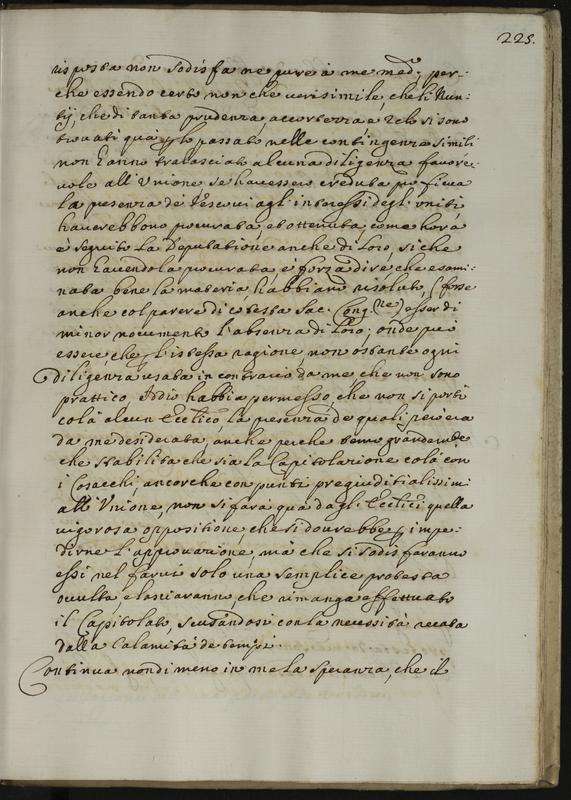 225.
risposta non sodisfa ne pure à me med:, per-
che essendo certo non che verisimile, che li Nun-
tij, che di tanta prudenza, accortezza e zelo si sono
trovati quà p lo passato nelle contingenze simili
non hanno tralasciato alcuna diligenza favore-
vole all'Unione se havessero creduta proficua
la presenza de Vescovi agl'interessi degl'uniti
haverebbono procurata, et ottenuta come hora
è seguito la Deputatione anche di loro, si che
non havendola procurata, è forza dire che esami-
naba bene la materia, habbiano risoluto, (forse
anche col parere di cotesta Sac. Cong.ne) esser di
minor nocumento l'absenza di loro; onde può
essere, che p l'istessa ragione non ostante ogni
diligenza usata in contrario da me che non sono
prattico, Iddio habbia permesso, che non si porti
colà alcun Ecc.tico, la presenza de quali, però era
da me desiderata, anche perche temo grandem.te
che stabilita che sia la Capitolazione colà con
i Cosacchi, ancorche con punti pregiuditialissimi
all'Unione, non si farà quà dagl'Ecc.tici quella
vigorosa oppositione, che si dovrebbe p impe-
dirne l'approvazione, mà che si sodisfaranno
essi nel farvi solo una semplice protesta
occulta, e lasciaranno, che rimanga effettuato
il Capitolato, scusandosi con la necessità recata
dalla Calamità de tempi.
Continua nondimeno in me la speranza, che il